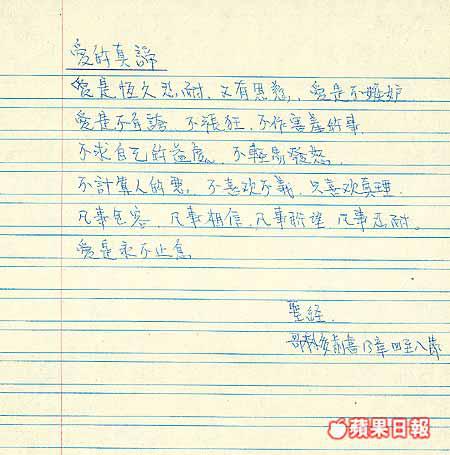 愛的真諦
愛是恆久忍耐、又有恩慈、愛是不嫉妒
愛是不自誇、不張狂、不作害羞的事
不求自己的益處、不輕易發怒、
不計算人的惡、不喜欢不義、只喜欢真理、
凡事包容、凡事相信、凡事盼望、凡事忍耐。
愛是永不止息
聖經、
哥林多前書13章四至八節
蘋果日報